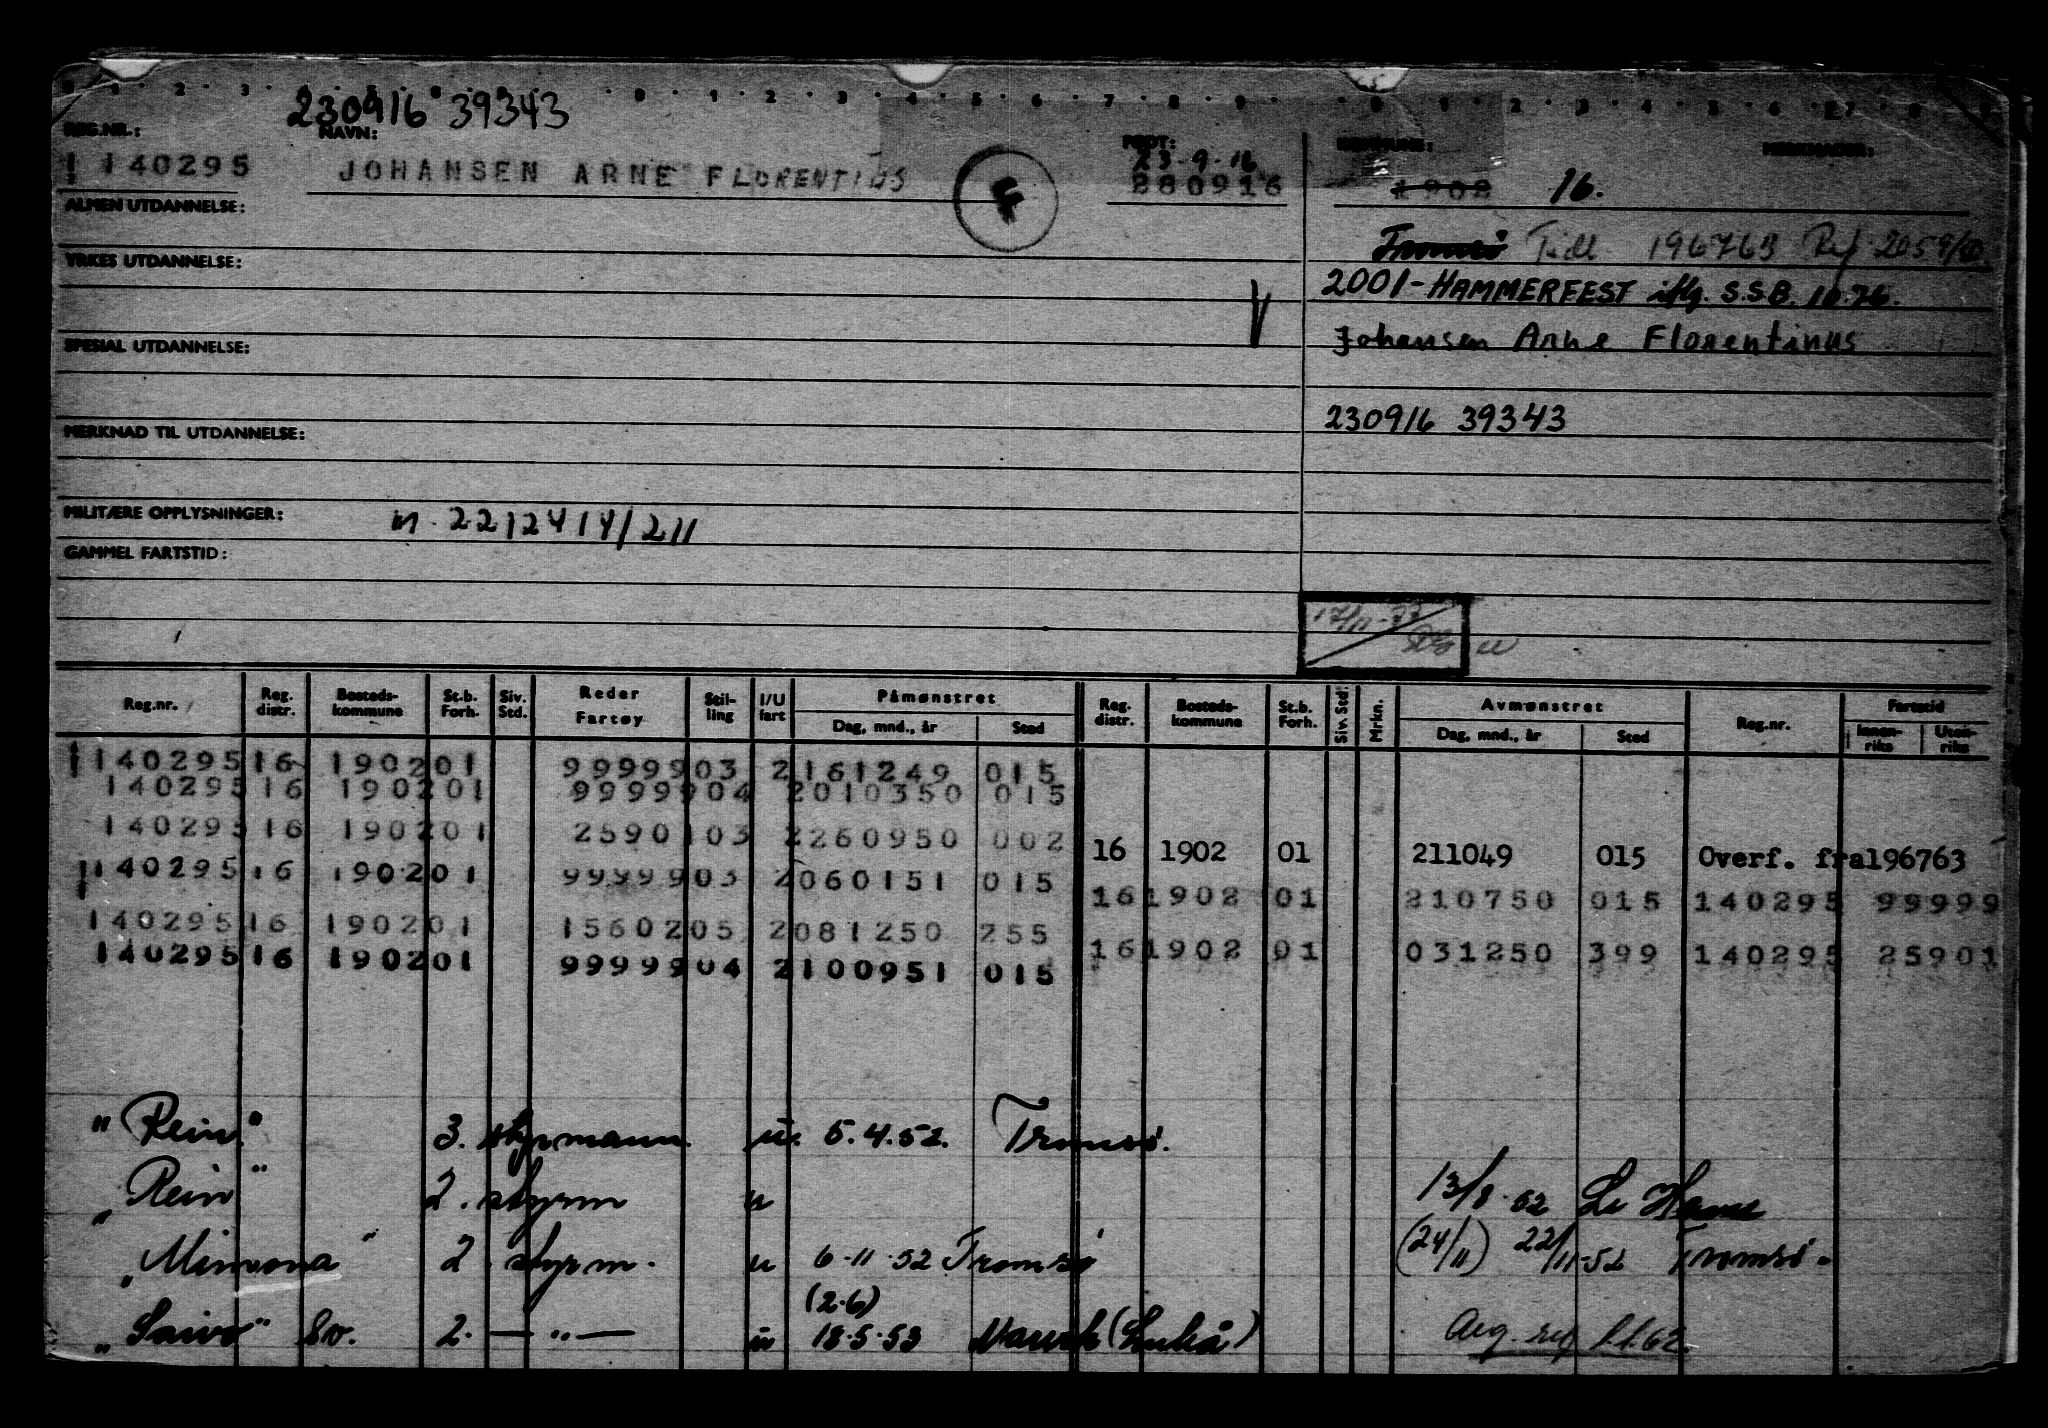 230916 39343
REG.NR.: NAVN: FØDT: KOMMUNE: MERKNADER:
23-9-16
140295 JOHANSEN ARNE FLORENTIUS F 280916 1902 16.
ALMEN UTDANNELSE:
Tromsø Tidl 196763 Ref
YRKES UTDANNELSE:
2001-HAMMERFEST iflg. S.S.B. 10.76.
Johansen Arne Florentinus
SPESIAL UTDANNELSE:
230916 39343
MERKNAD TIL UTDANNELSE:
MILITÆRE OPPLYSNINGER: m. 2212414/211
GAMMEL FARTSTID:
17/11-77
Reg.nr. Reg. distr. Bosteds-kommune St.b. Forh. Siv. Std. Reder Fartøy Stil-ling I/U fart Påmønstret Dag, mnd., år Sted Reg. distr. Bosteds-kommune St.b. Forh. Siv. Std. Mrkn. Avmønstret Dag, mnd., år Sted Reg.nr. Fartstid Innen-riks Uten-riks
140295 16 1902 01 99999 03 2 161249 015
140295 16 1902 01 99999 04 2 010350 015
140295 16 1902 01 2590 1 03 2 260950 002
16 1902 01 211049 015 Overf. fra196763
140295 16 1902 01 99999 03 2 060151 015
16 1902 01 210750 015 140295 99999
140295 16 1902 01 15602 05 2 081250 255
16 1902 01 031250 399 140295 25901
140295 16 1902 01 99999 04 2 100951 015
"Rein" 3. styrmann. u. 5.4.52. Tromsø.
"Rein" 2. styrm u 13/8.52 Le Havre
"Mimona" 2. styrm. u 6-11-52 Tromsø (24/11) 22/11-52 Tromsø.
(2.6)
"Saivo" Sv. 2. — " — u 18.5.53 Narvik (Luleå)